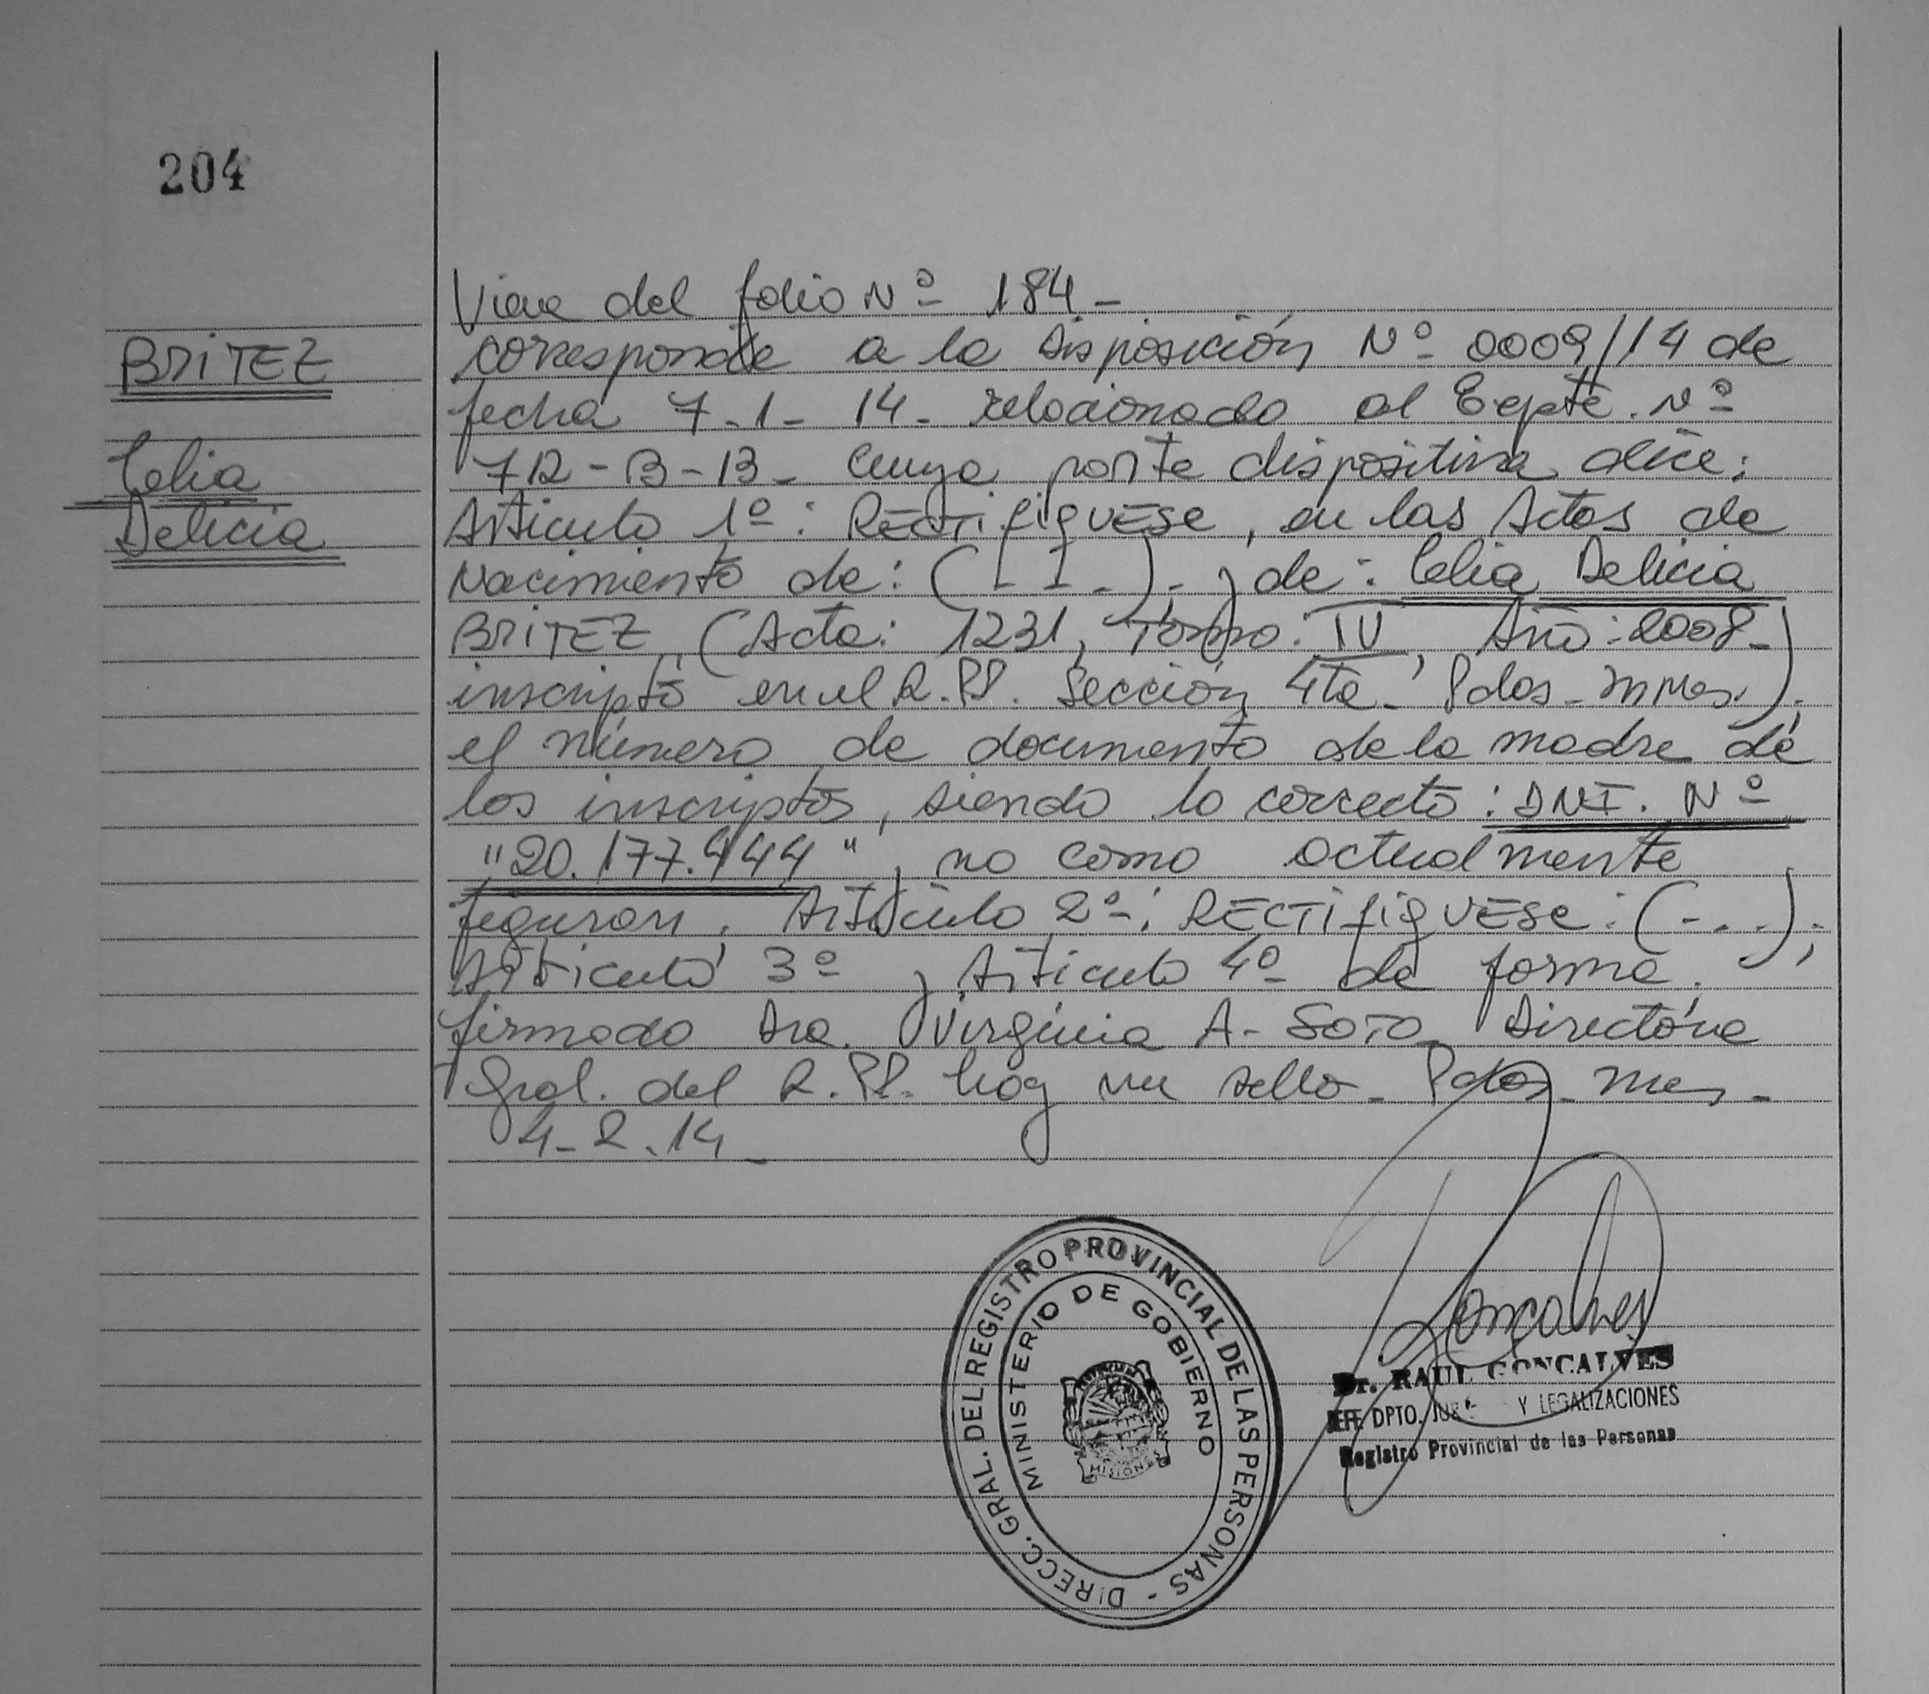 204
BRITEZ
Celia
Delicia
Viene del folio Nº 184 -
corresponde a la Disposición Nº 0009/14 de
fecha 7-1-14- relacionado al Expte. Nº
72-B-13- cuya parte dispositiva dice:
Artículo 1º: RECTIFIQUESE, en las Actas de
Nacimiento de: (- - -)-, de: Celia Delicia
BRITEZ, (Acta: 1231, Tomo: IV, Año: 2008-
inscripto en el R.PP. Sección 4ta- Pdas-Mnes.),
el número de documento de la madre de
los inscriptos, siendo lo correcto: DNI. Nº
"20.177.444", no como actualmente
figuran. Artículo 2º: RECTIFIQUESE: (- . .);
Artículo 3º y Artículo 4º de forma.
firmado Dra. Virginia A. SOTO Directora
Gral. del R.PP. hay un sello- Pdas- Mnes-
4-2-14-
DIRECC. GRAL. DEL REGISTRO PROVINCIAL DE LAS PERSONAS -
MINISTERIO DE GOBIERNO
MISIONES
Goncalves
Dr. RAUL GONCALVES
JEFE DPTO. Y LEGALIZACIONES
Registro Provincial de las Personas